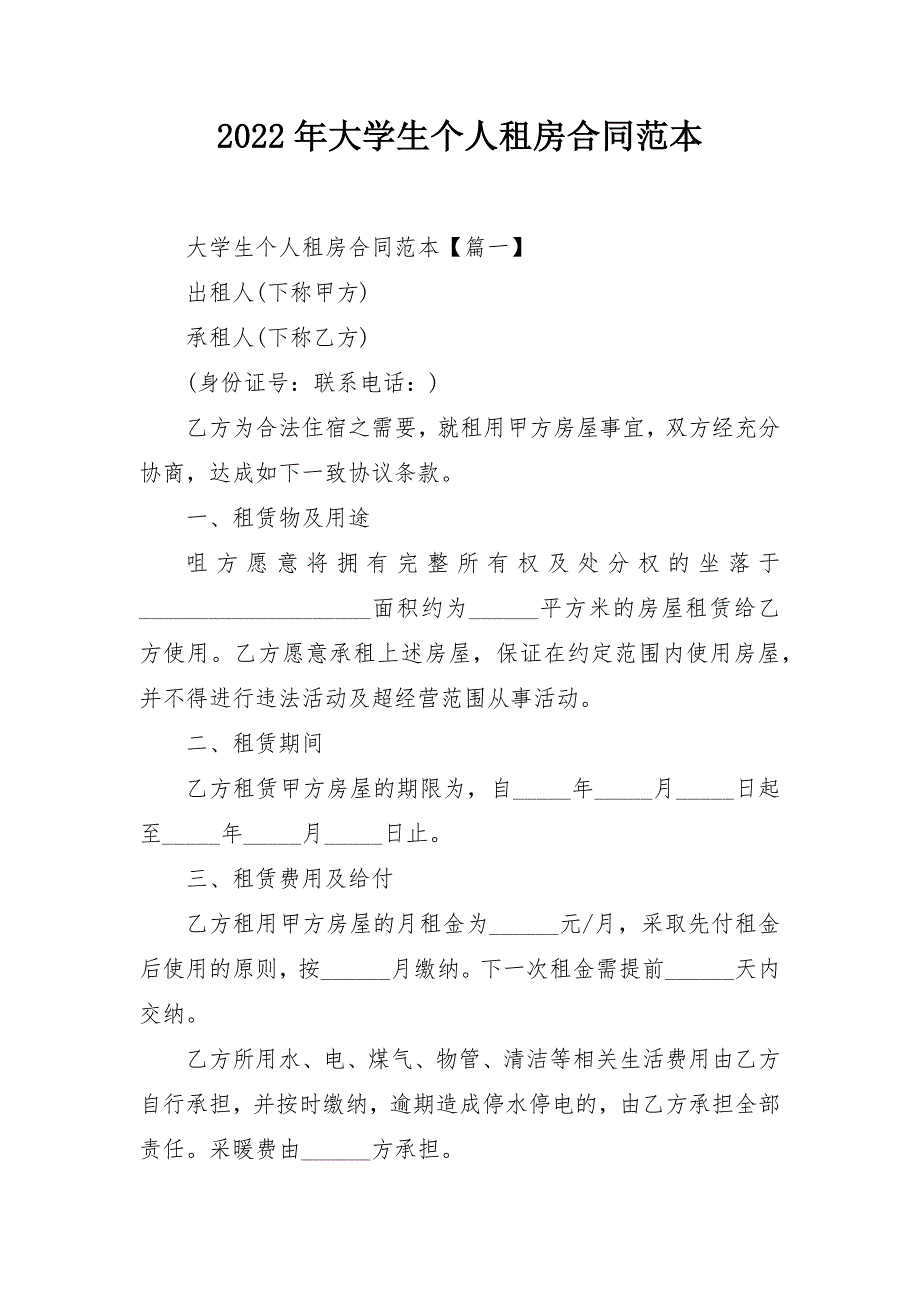 2022年大学生个人租房合同范本
大学生个人租房合同范本【篇一】
出租人(下称甲方)
承租人(下称乙方)
(身份证号：联系电话：)
乙方为合法住宿之需要，就租用甲方房屋事宜，双方经充分
协商，达成如下一致协议条款。
一、租赁物及用途
咀方愿意将拥有完整所有权及处分权的坐落于
____________________面积约为______平方米的房屋租赁给乙
方使用。乙方愿意承租上述房屋，保证在约定范围内使用房屋，
并不得进行违法活动及超经营范围从事活动。
二、租赁期间
乙方租赁甲方房屋的期限为，自_____年_____月_____日起
至_____年_____月_____日止。
三、租赁费用及给付
乙方租用甲方房屋的月租金为______元/月，采取先付租金
后使用的原则，按______月缴纳。下一次租金需提前______天内
交纳。
乙方所用水、电、煤气、物管、清洁等相关生活费用由乙方
自行承担，并按时缴纳，逾期造成停水停电的，由乙方承担全部
责任。采暖费由______方承担。